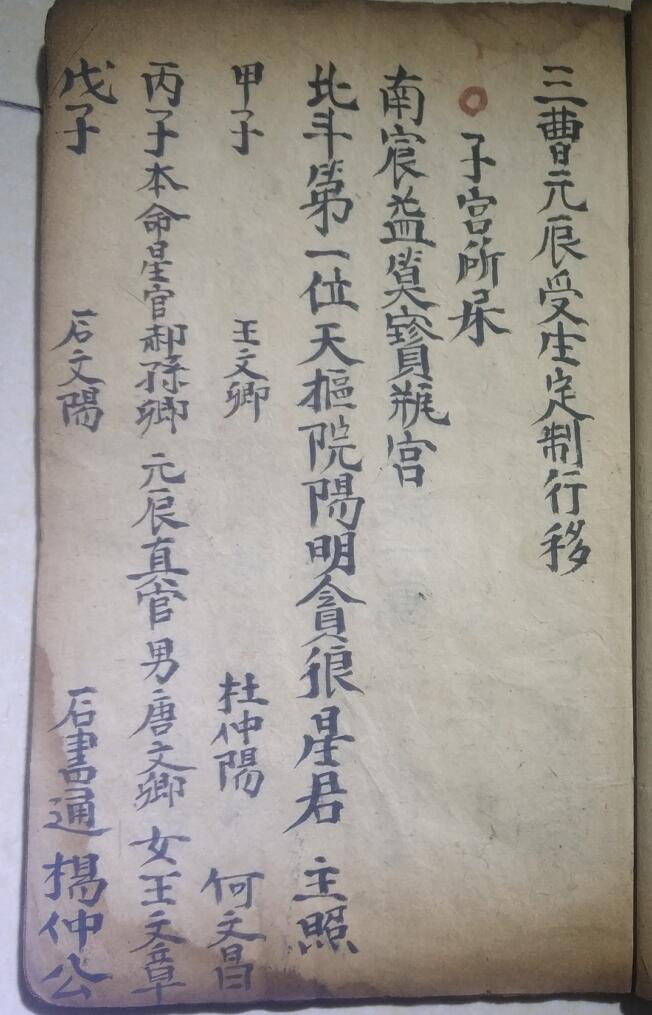 三曹元辰受生定制行移
子宫所
南宸益筭寳瓶宫
北斗第一位天樞院陽明貪狼星君 主照
甲子 王文卿 杜仲陽 何文昌
丙子本命星官郝孫卿 元辰真官男唐文卿女王文章
戊子 石文陽 石書通 楊仲公